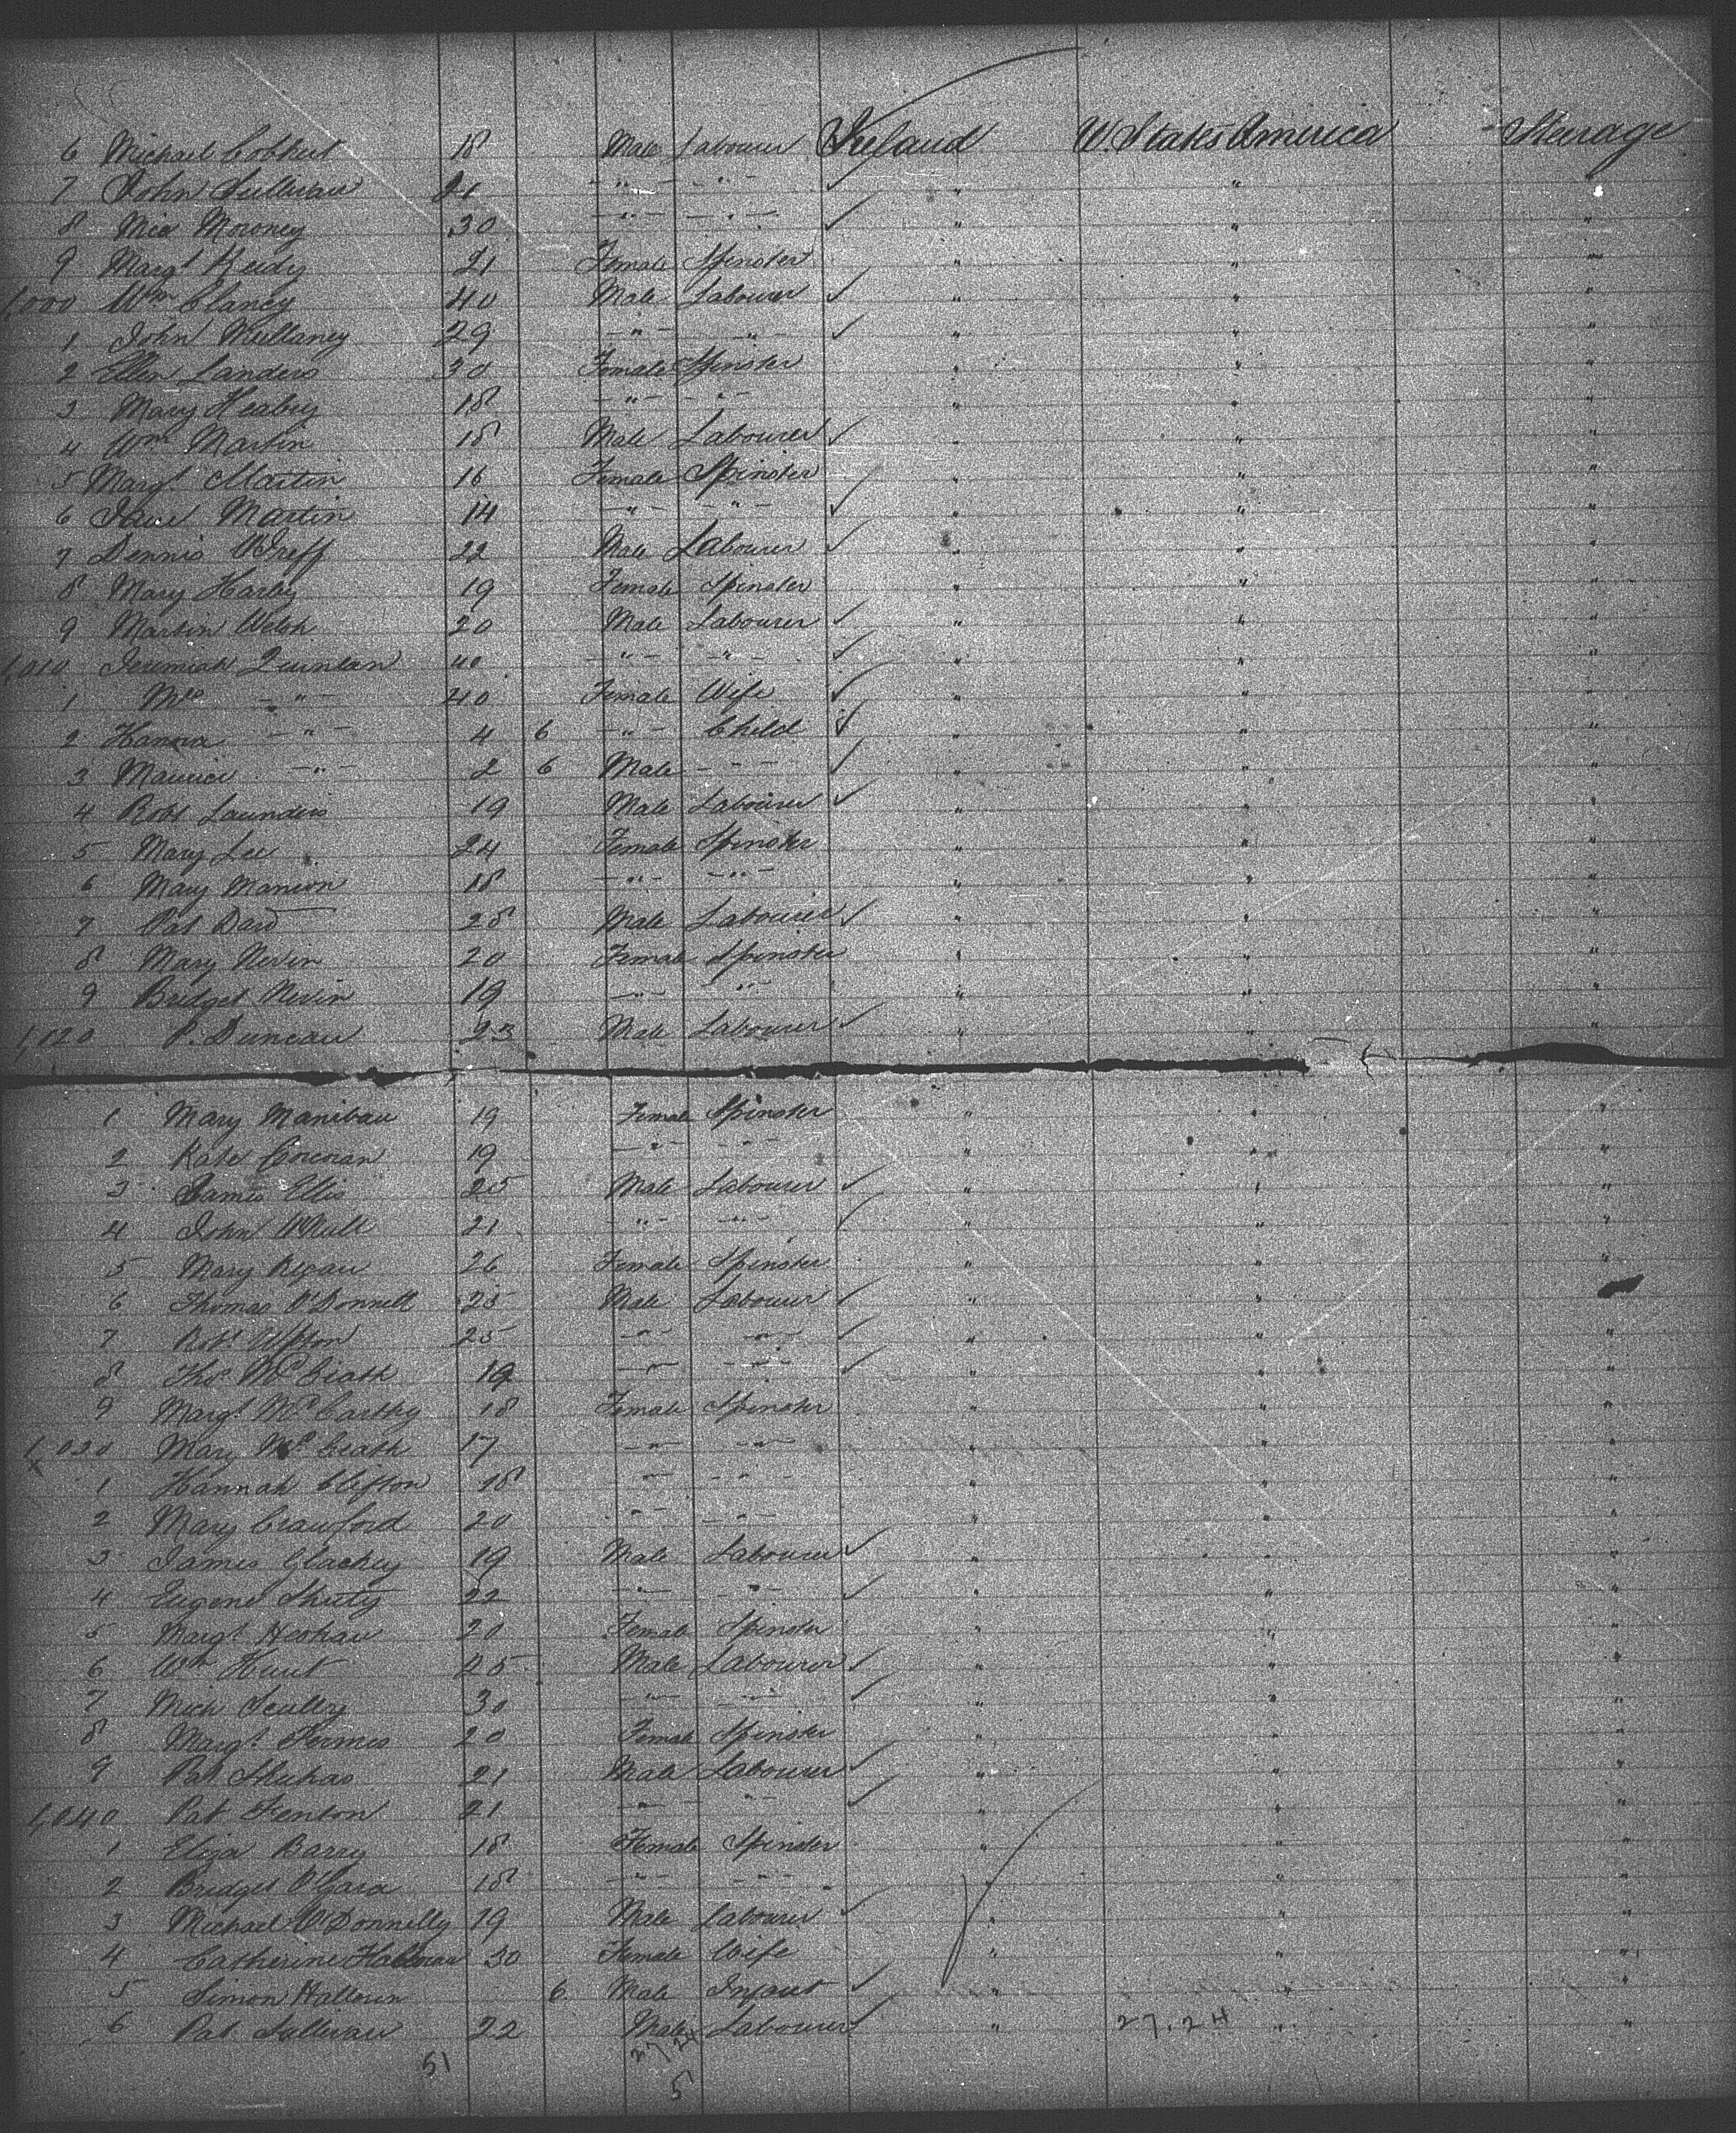 6 Michael 18 Male Labourer Ireland U. States America Steerage
7 John Sullivan 21 " " " " "
8 Mic Moroney 30 " " " " "
9 Margt Reidy 21 Female Spinster " " "
1,000 Wm Clancy 40 Male Labourer " " "
1 John Mullaney 29 " " " " "
2 Ellen Landers 30 Female Spinster " " "
3 Mary 18 " " " " "
4 Wm Martin 18 Male Labourer " " "
5 Margt Martin 16 Female Spinster " " "
6 Jane Martin 14 " " " " "
7 Dennis 22 Male Labourer " " "
8 Mary Harby 19 Female Spinster " " "
9 Martin Welsh 20 Male Labourer " " "
1,010 Jeremiah Quinlan 40 " " " " "
1 Mrs " 40 Female Wife " " "
2 Hanora " 4 6 " Child " " "
3 Maurice " 2 6 Male " " " "
4 Robt Saunders 19 Male Labourer " " "
5 Mary Lee 24 Female Spinster " " "
6 Mary Manion 18 " " " " "
7 Pat 28 Male Labourer " " "
8 Mary Nevin 20 Female Spinster " " "
9 Bridget Nevin 19 " " " " "
1,020 P. Duncan 23 Male Labourer " " "
1 Mary 19 Female Spinster " " "
2 Kate Corcoran 19 " " " " "
3 James Ellis 25 Male Labourer " " "
4 John 21 " " " " "
5 Mary Regan 26 Female Spinster " " "
6 Thomas O'Donnell 25 Male Labourer " " "
7 Robt Upton 25 " " " " "
8 Thos 19 " " " " "
9 Margt McCarthy 18 Female Spinster " " "
1,030 Mary 17 " " " " "
1 Hannah Clifton 18 " " " " "
2 Mary Crawford 20 " " " " "
3 James 19 Male Labourer " " "
4 Eugene 22 " " " " "
5 Margt 20 Female Spinster " " "
6 Wm Hunt 25 Male Labourer " " "
7 Mich Scully 30 " " " " "
8 Margt 20 Female Spinster " " "
9 Pat 21 Male Labourer " " "
1,040 Pat Fenton 21 " " " " "
1 Eliza Barry 18 Female Spinster " " "
2 Bridget O'Gara 18 " " " " "
3 Michael O'Donnelly 19 Male Labourer " " "
4 Catherine 30 Female Wife " " "
5 Simon Halloran 6 Male Infant " " "
6 Pat Sullivan 22 Male Labourer " 27.24 " "
51 27 24
5